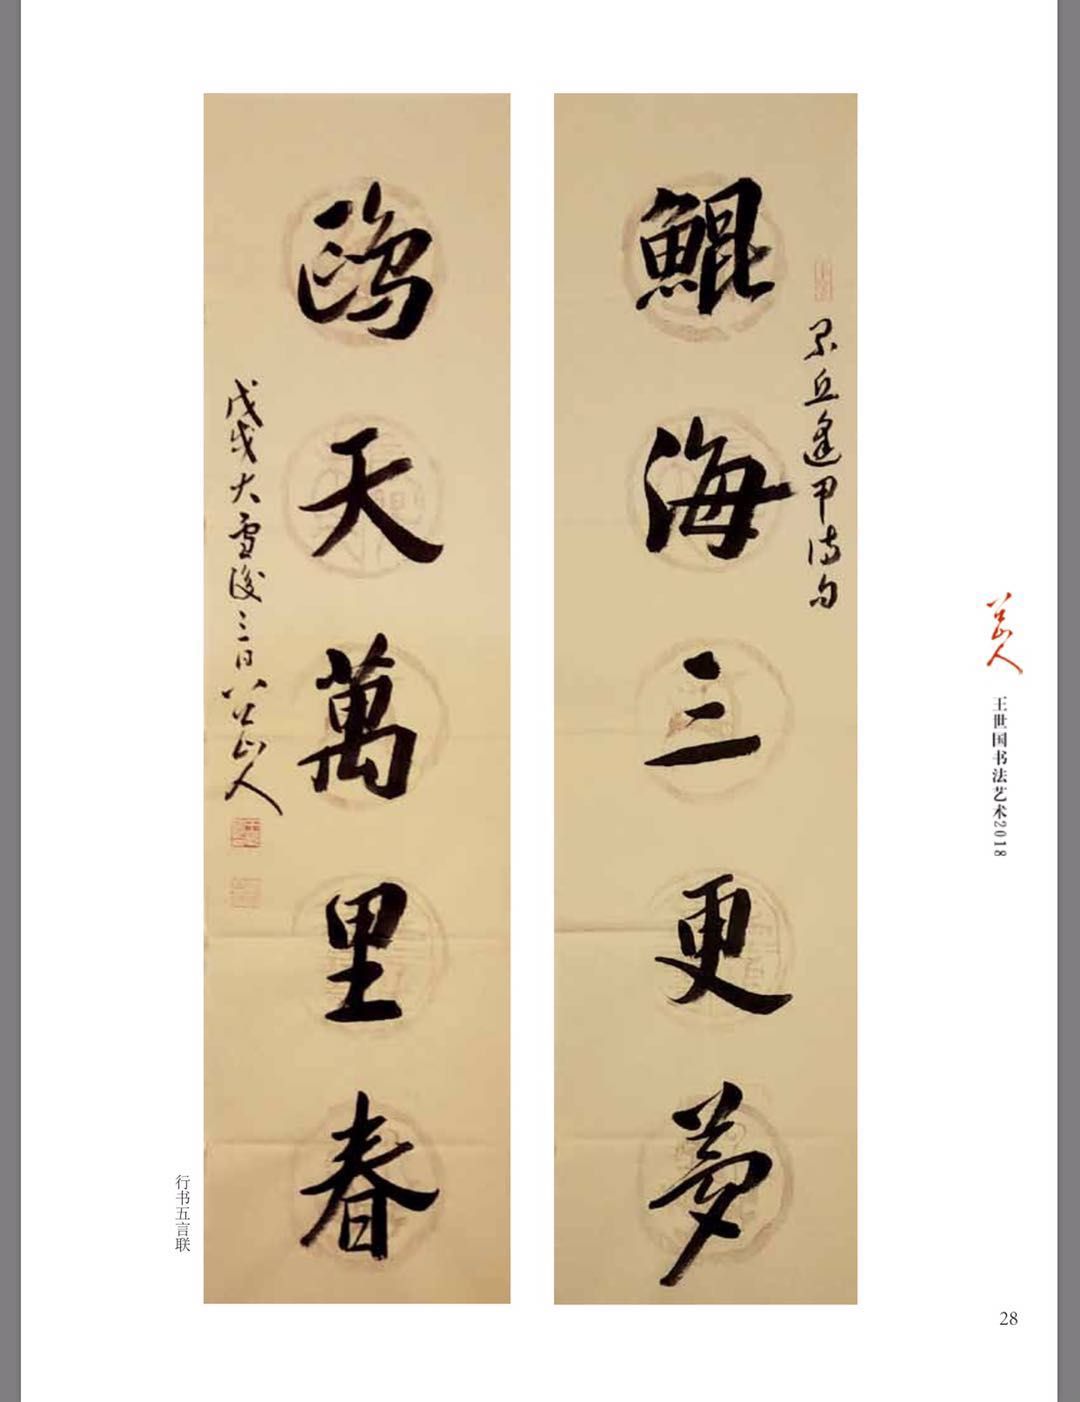 鯤海三更夢
丘逢甲詩句
鷗天萬里春
戊戌大雪後三日八公山人
行书五言联
八公山人
王世国书法艺术2018
28